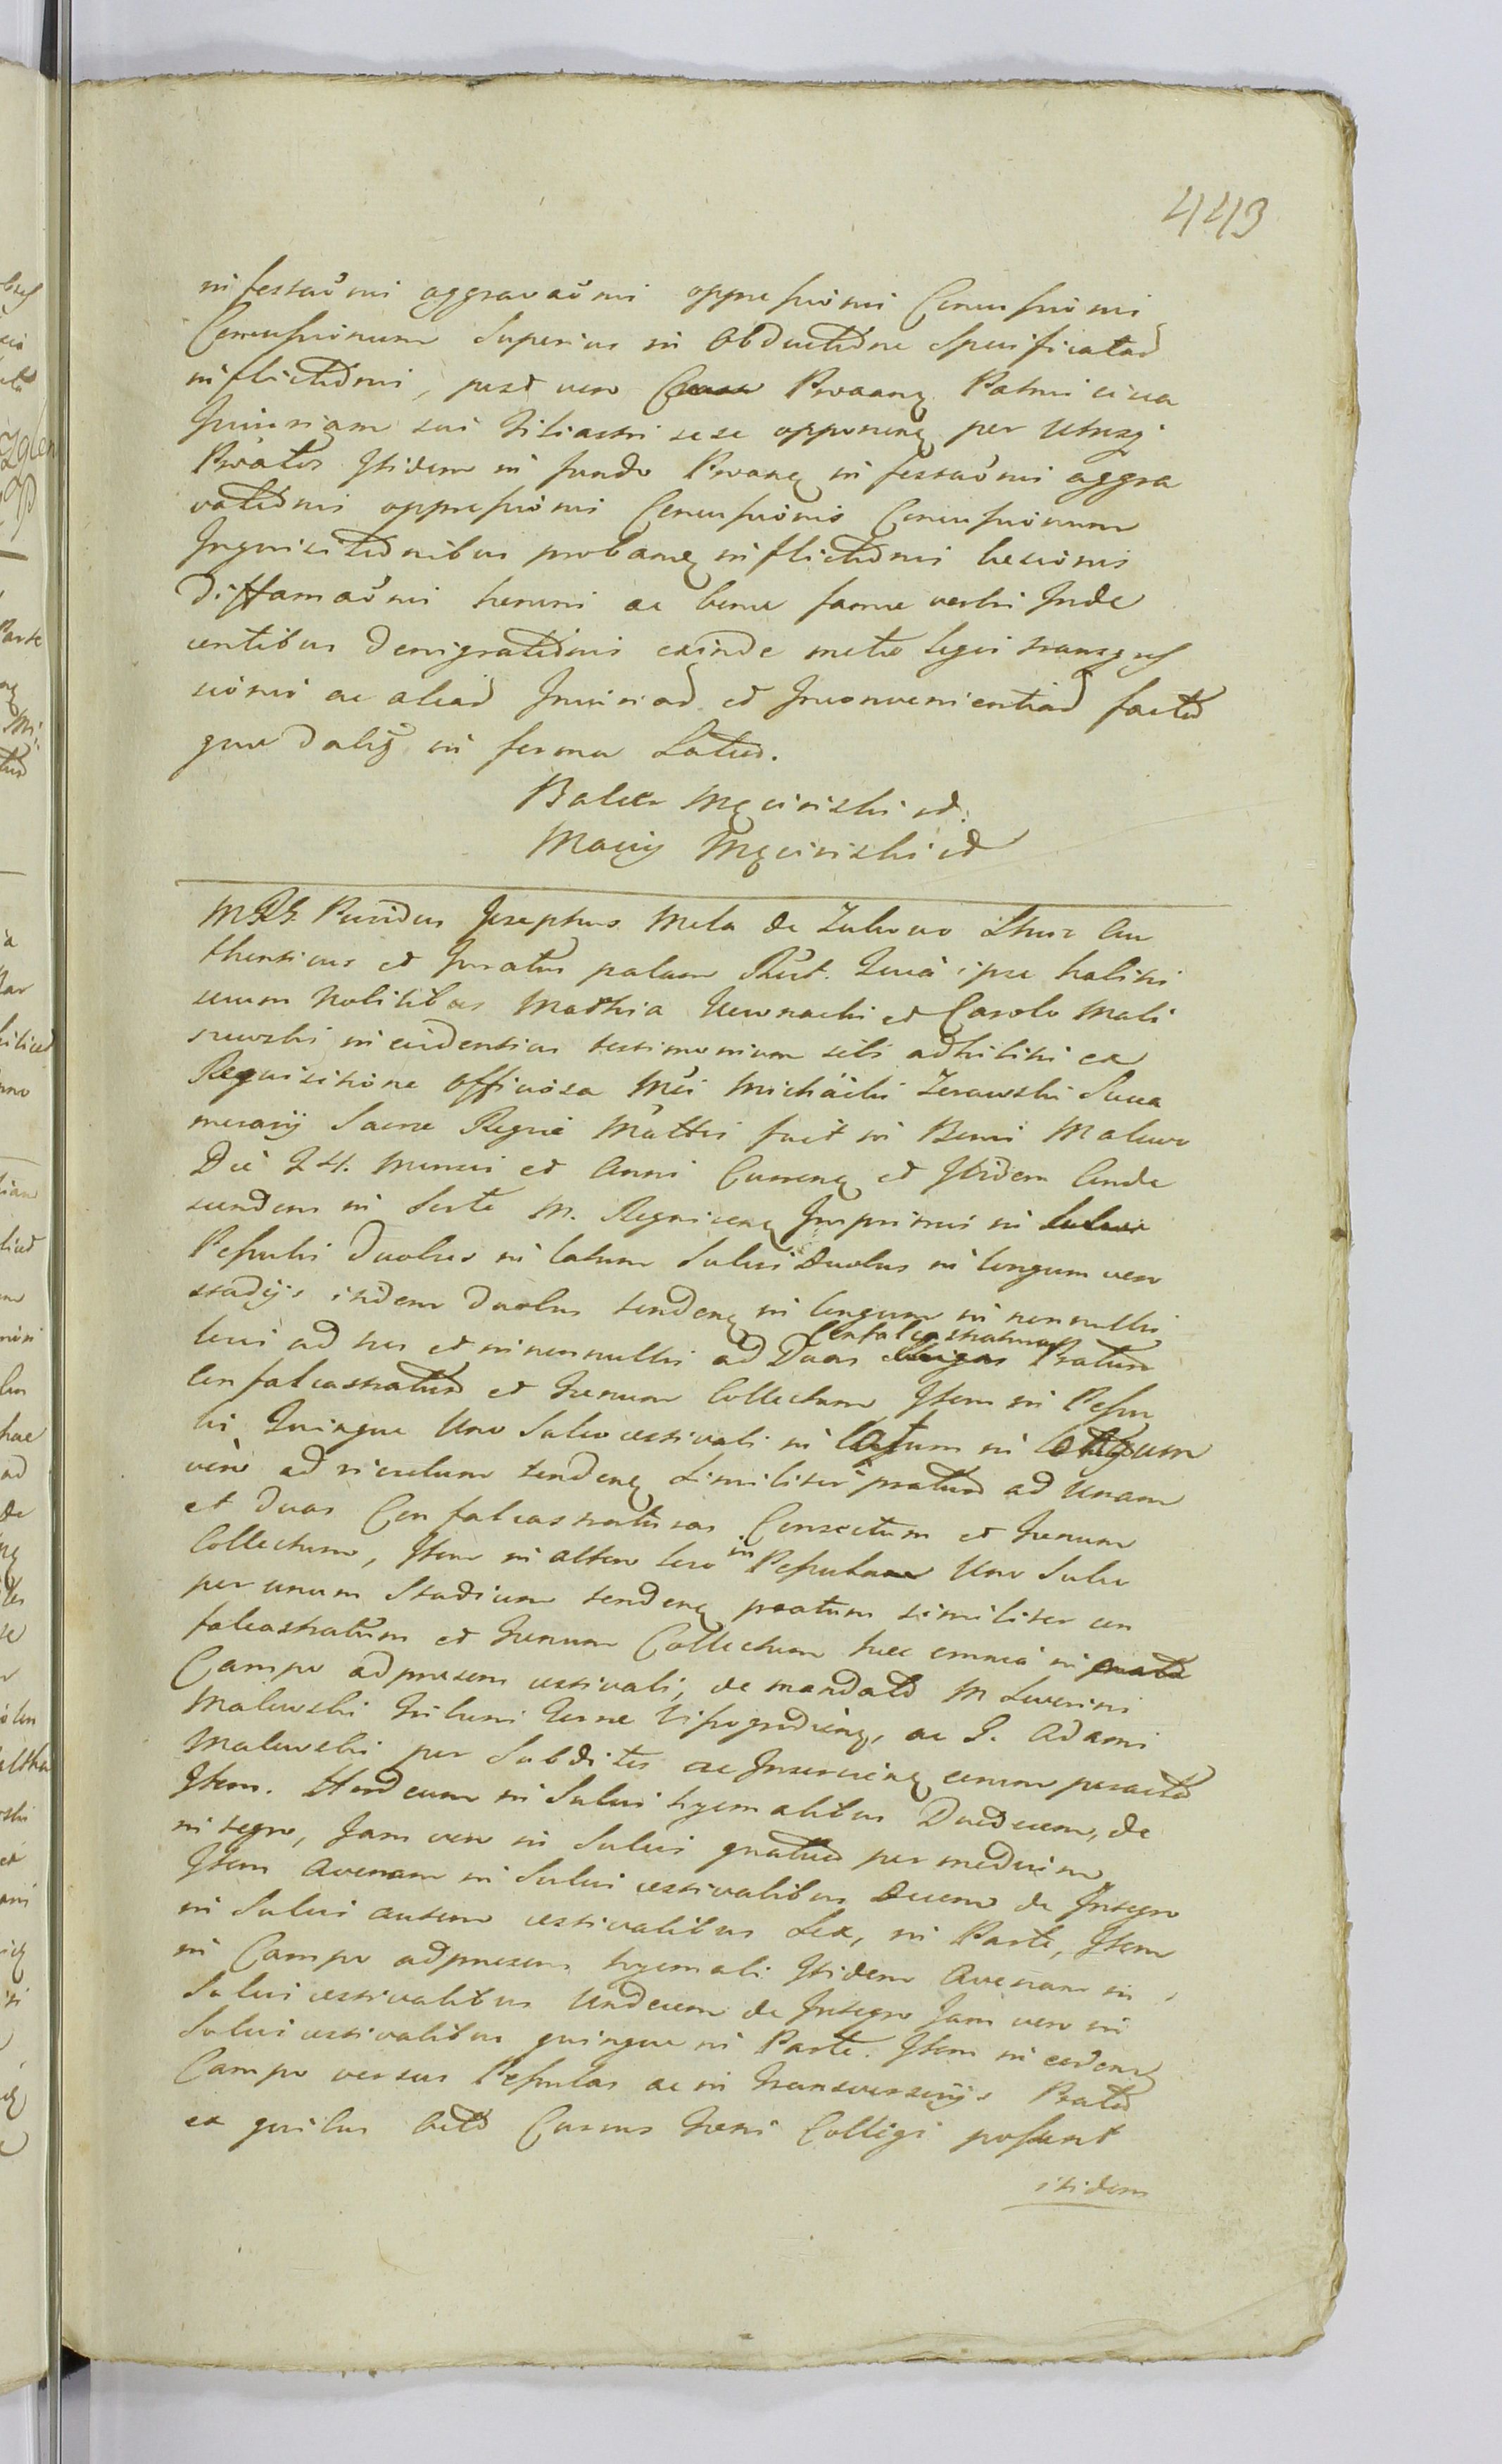 443
infestaoni aggravaoni oppressioni Concussioni
Concussionum Superius in Obductione Specificatas
inflictioni, post vero Proang Patrui circa
Injuriam sui filiastri sese opponeng per Utrsq
Prôatos Itidem in fundo Proang infestaoni aggra
vationis oppressionis Concussionis Concussionum
Inquisitionibus probang inflictionis laesionis
Diffamaonis honoris ac bonae famae verbis Inde
centibus denigrationis exinde metu legis transgres
sionis ac alias Injurias et Inconvenientias factas
quae dabis in forma Latius.
Balcer Mącirzki id.
Maciy Mącirzki id
MRG. Providus Josephus Mela de Zulowo Lhus Au
thenticus et Juratus palam Rec̃t. quia ipse habitis
secum Nobilibus Mathia et Carolo Mali
szewski in evidentius testimonium sibi adhibitis ex
Requisitione officiosa Mci Michaelis Zerawski Succa
merarij Sacrae Regiae Mattis fuit in Bonis Malewo
Die 24. Mensis et Anni Curreng et Itidem Conde
scendens in Sorte M. Requireng Imprimis in
Pessulis duobus in latum Sulcis Duobus in longum vero
stadijs itidem duobus tendeng in longum in nonnullis
Confalcastratum
locis ad tres et in nonnullis ad Duas Pratum
Confalcastratum et foenum Collectum Item in Pessu
lis Quinque Uno Sulco aestivali in latum in longum
vero ad riculum tendeng Similiter pratum ad Unam
et duas Confalcastraturas Consectum et foenum
Collectum, Item in altero loco in Pessula Uno Sulco
per unum Stadium tendeng pratum similiter con
falcastratum et foenum Collectum haec omnia in
Campo ad praesens aestivali, de mandato M Severini
Malewski tribuni Terrae, ac G. Adami
Malewski per Subditos ac Inservieng eorum peracta
Item. Hordeum in Sulcis hyemalibus Duodecem, de
integro, Jam vero in Sulcis quatuor per medium
Item Avenam in Sulcis aestivalibus Decem de Integro
in Sulcis autem aestivalibus Sex, in Parte, Item
in Campo adpraesens hyemali Itidem Avenam in
Sulcis aestivalibus Undecem de Integro Jam vero in
Sulcis aestivalibus quinque in Parte. Item in eodem
Campo versus Pessulas ac in transversijs Prata
ex quibus Octo Currus foeni Colligi possunt
itidem